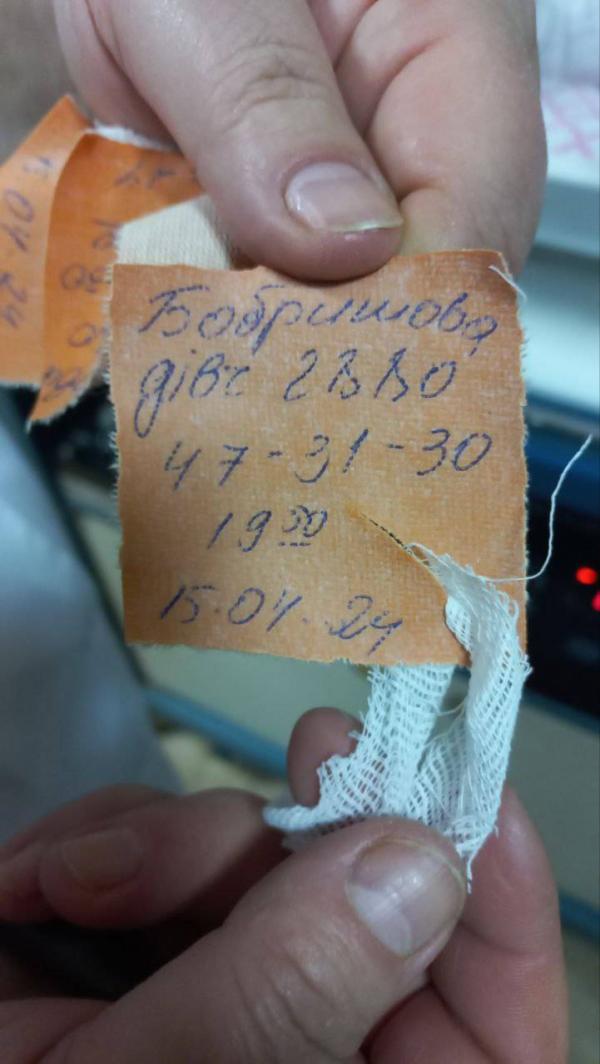 Бобришова
дівч 2880
47-31-30
19 30
15.04.24
04.24